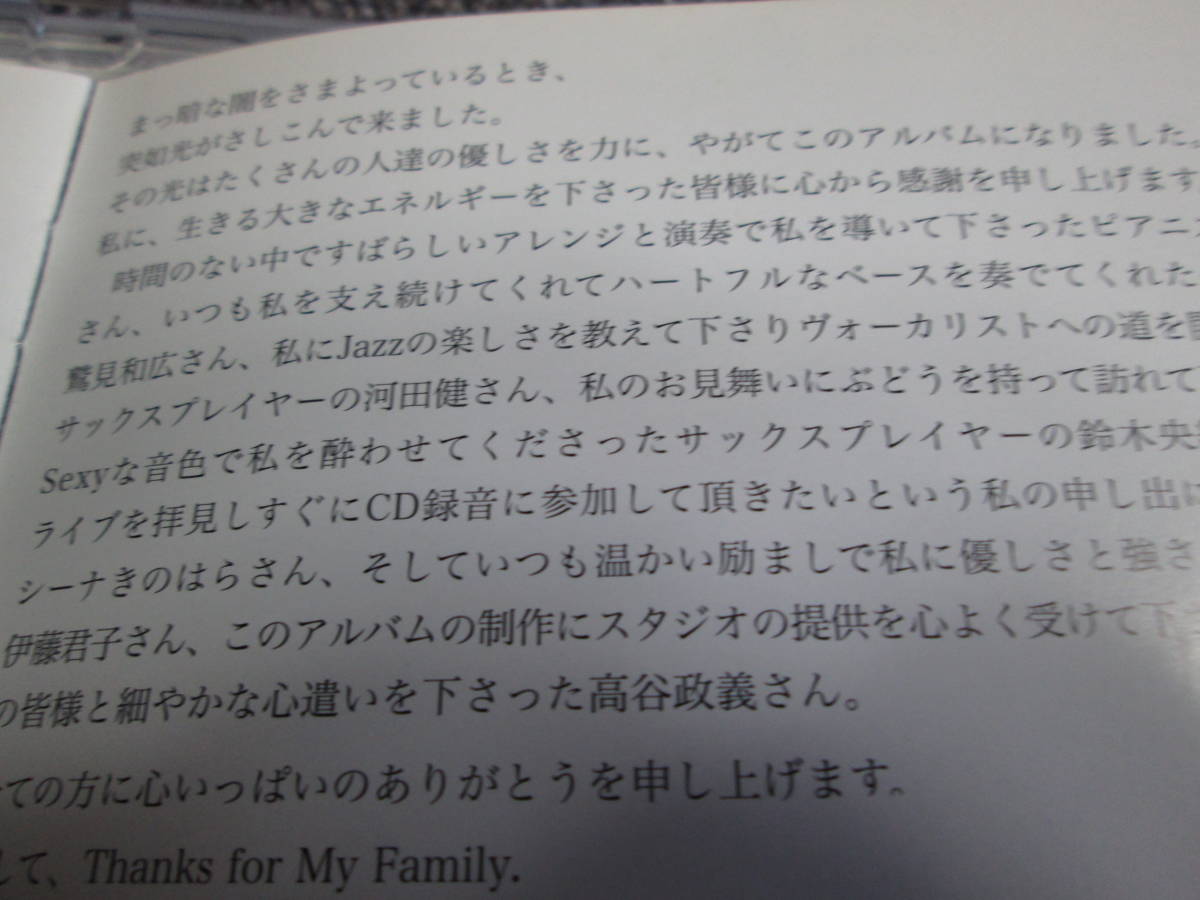 まっ暗な闇をさまよっているとき、
突如光がさしこんで来ました。
その光はたくさんの人達の優しさを力に、やがてこのアルバムになりました。
私に、生きる大きなエネルギーを下さった皆様に心から感謝を申し上げます
時間のない中ですばらしいアレンジと演奏で私を導いて下さったピアニ
さん、いつも私を支え続けてくれてハートフルなベースを奏でてくれた
鷲見和広さん、私にJazzの楽しさを教えて下さりヴォーカリストへの道を
サックスプレイヤーの河田健さん、私のお見舞いにぶどうを持って訪れて
Sexyな音色で私を酔わせてくださったサックスプレイヤーの鈴木央
ライブを拝見しすぐにCD録音に参加して頂きたいという私の申し出に
シーナきのはらさん、そしていつも温かい励ましで私に優しさと強さ
伊藤君子さん、このアルバムの制作にスタジオの提供を心よく受けて下
の皆様と細やかな心遣いを下さった高谷政義さん。
ての方に心いっぱいのありがとうを申し上げます。
して、Thanks for My Family.